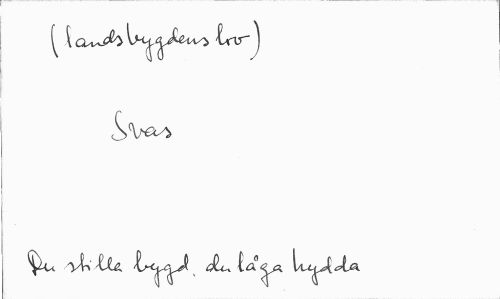 (landsbygdens lov)
Svas
Du stilla bygd, du låga hydda